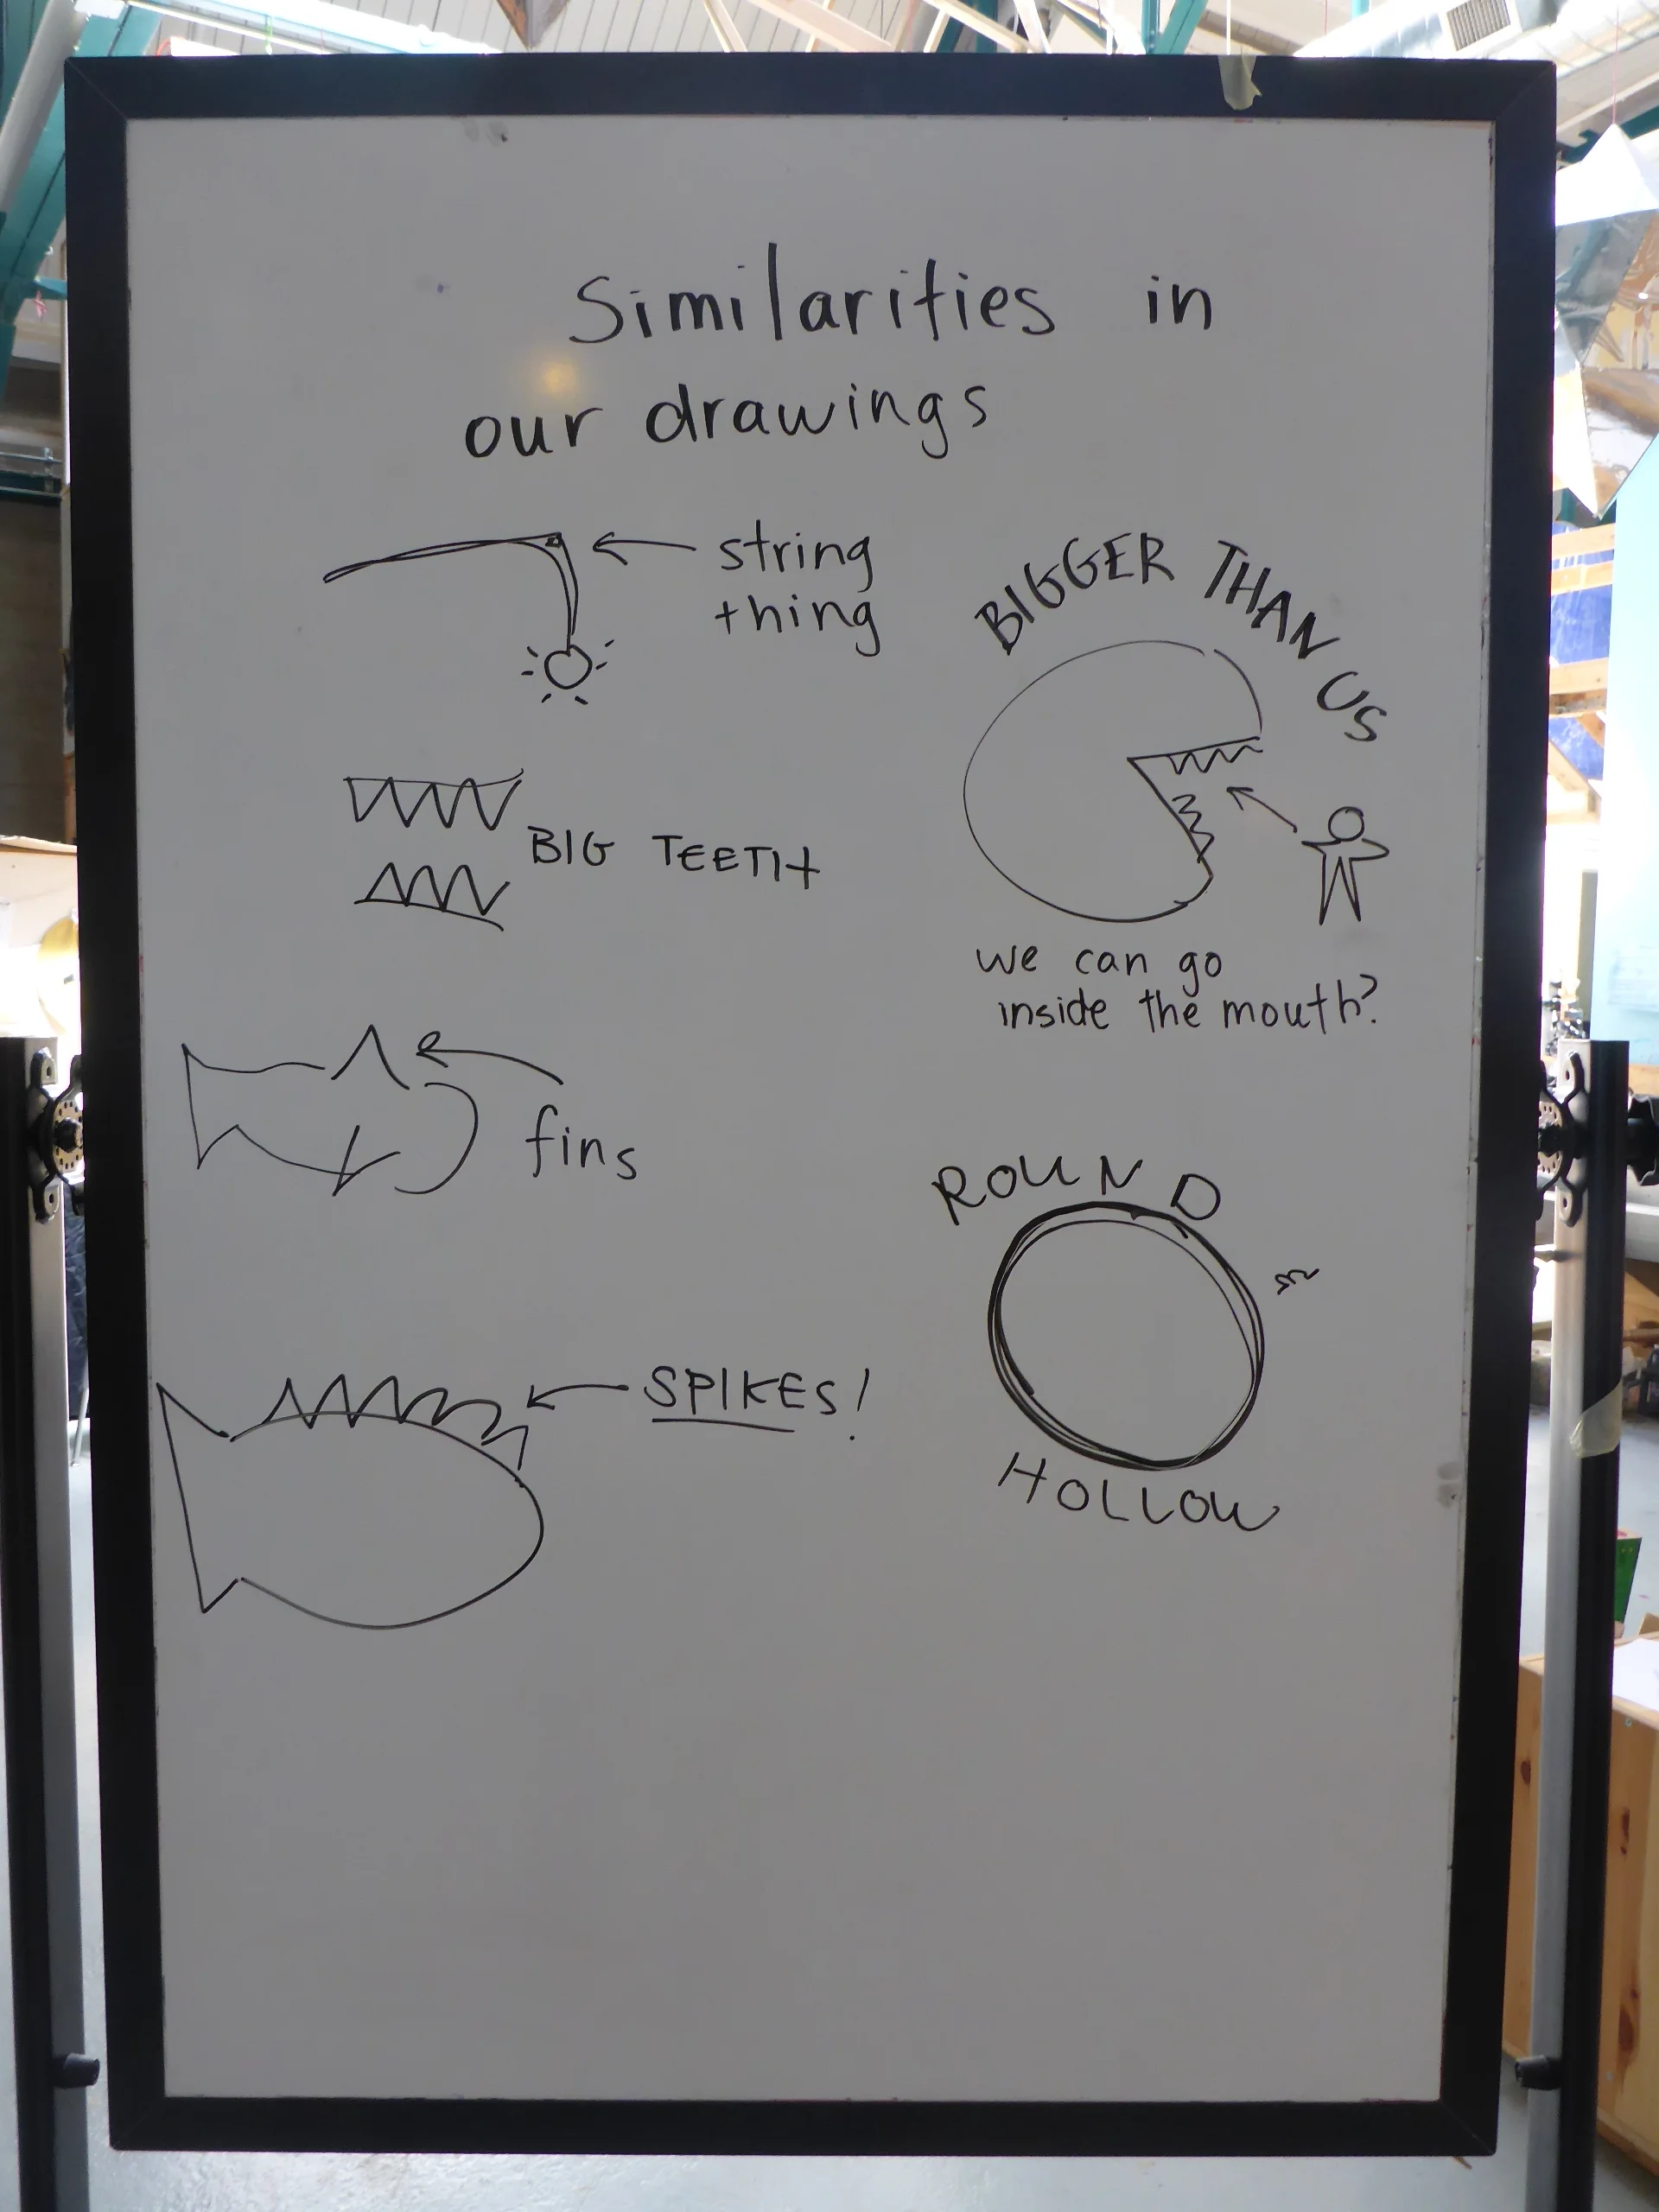 Similarities in
our drawings
string
thing
BIG TEETH
fins
SPIKES!
BIGGER THAN US
we can go
inside the mouth?
ROUND
HOLLOW